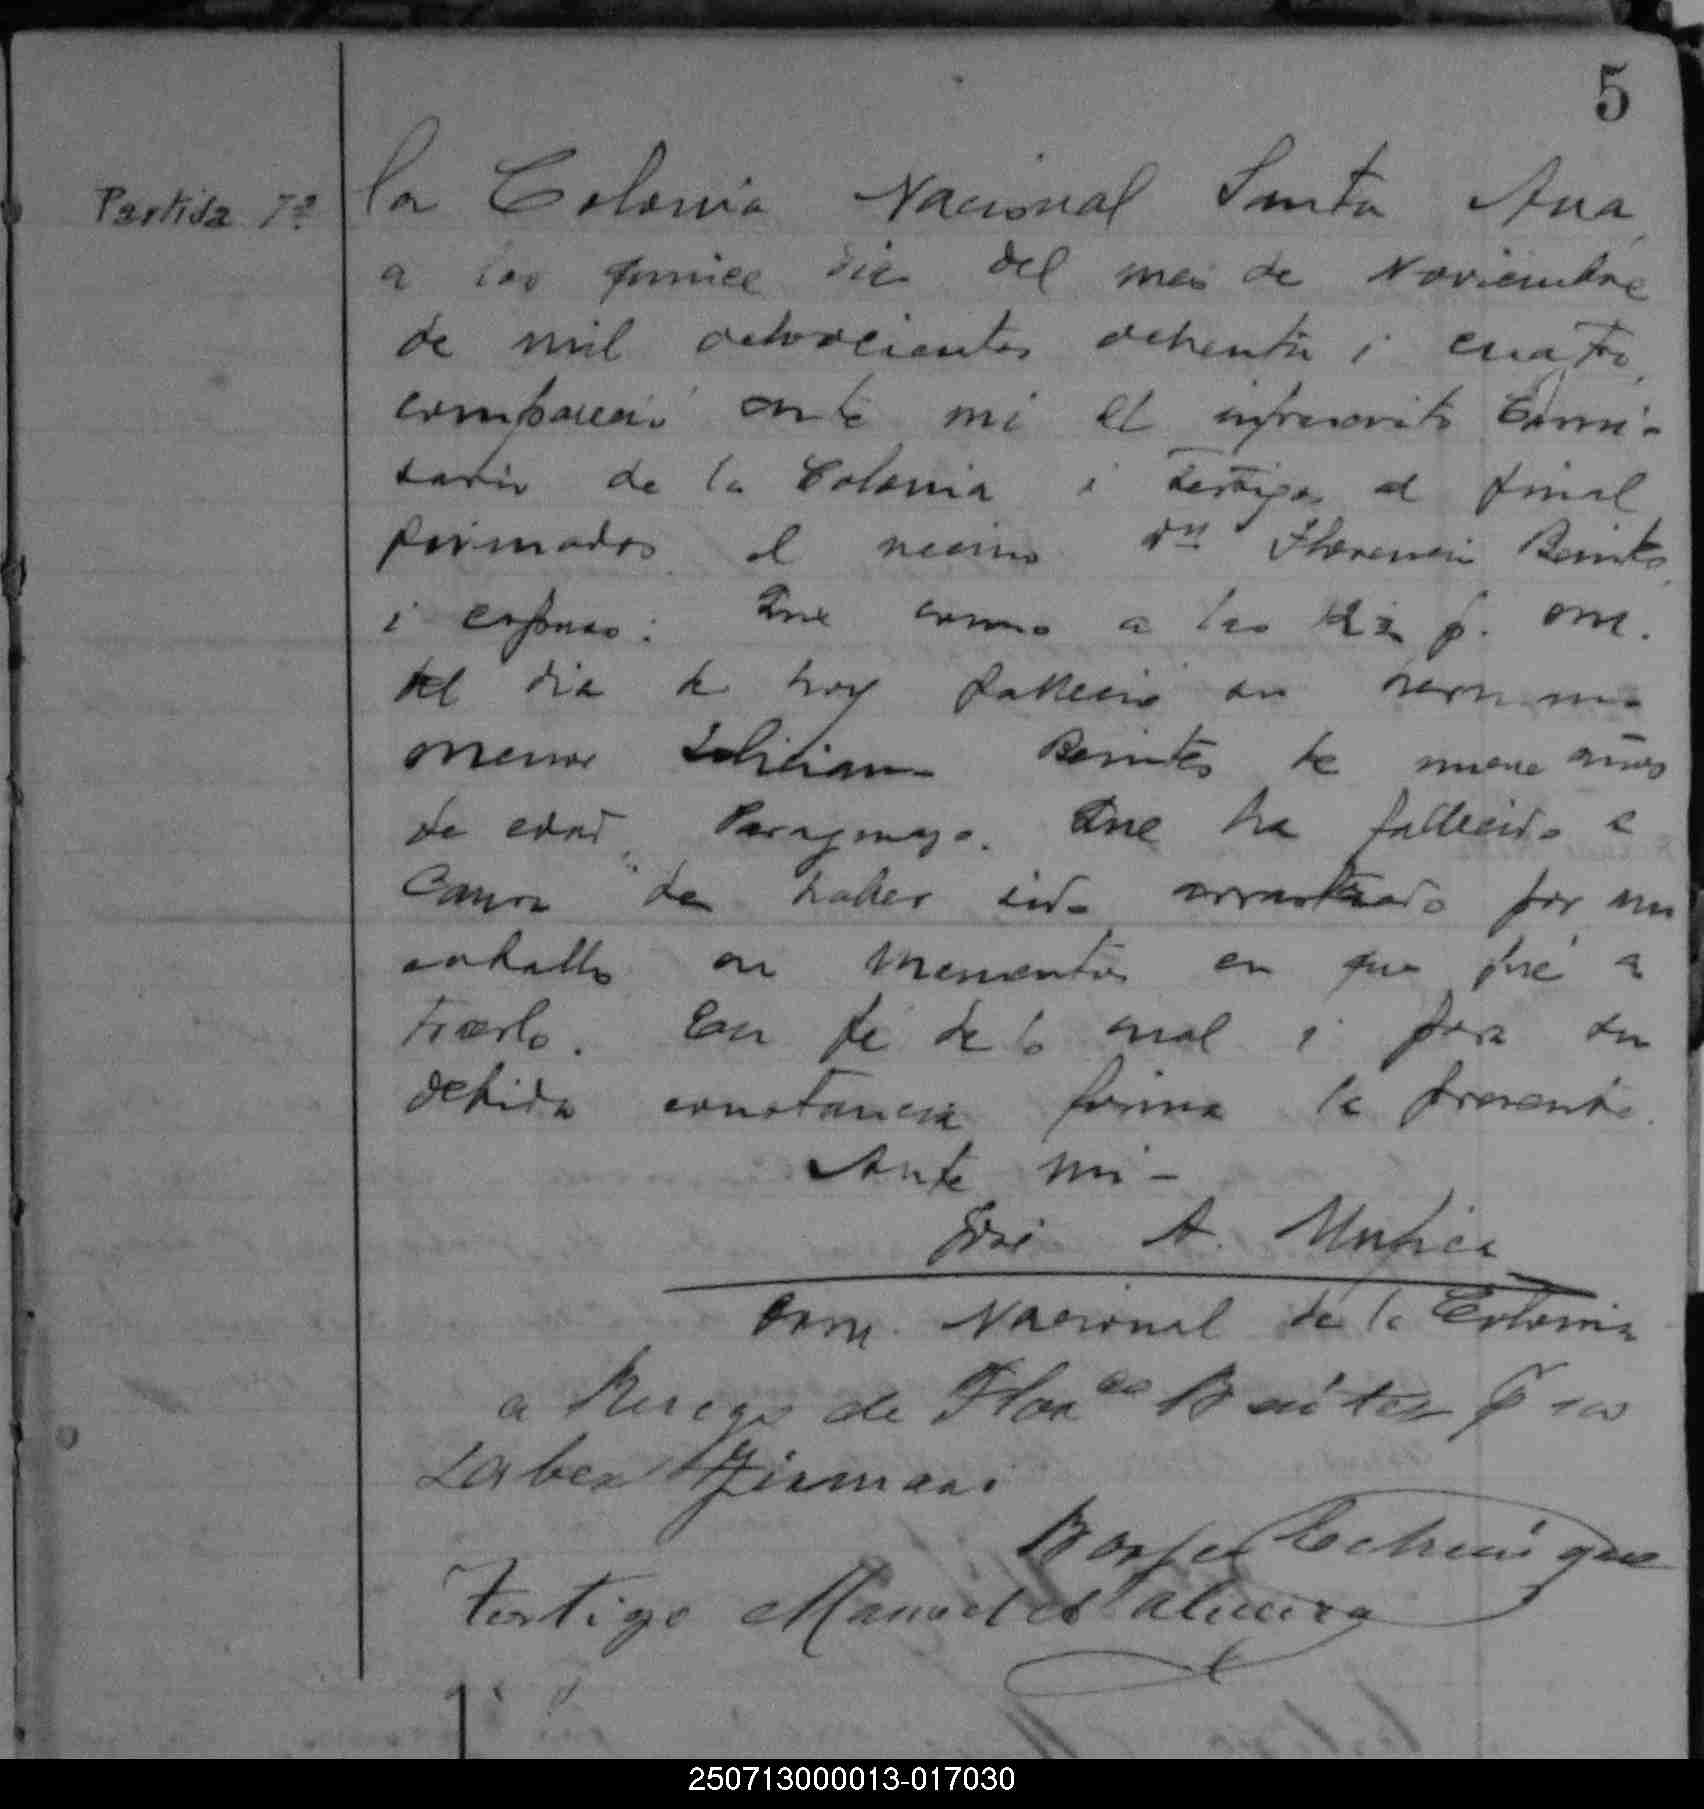 5
Partida 7ª
la Colonia Nacional Santa Ana,
a los quince dia del mes de Noviembre
de mil ochocientos ochenta i cuatro,
compareció ante mi el infrascrito Comi-
sario de la Colonia i testigos al final
firmados el vecino dn Florencio Benites,
i expuso: Que como a las p. m.
del dia de hoy falleció su hermano
menor Benites de nueve años
de edad, Paraguayo. Que ha fallecido a
causa de haber sido arrastrado por un
caballo en momentos en que fué a
traerlo. En fé de lo cual i para su
debida constancia firma la presente.
Ante mi -
José A. Mujica
Com. Nacional de la Colonia
a Ruego de Florco Benites p no
saber firmar
Echenique
Testigo Manuel
250713000013-017030